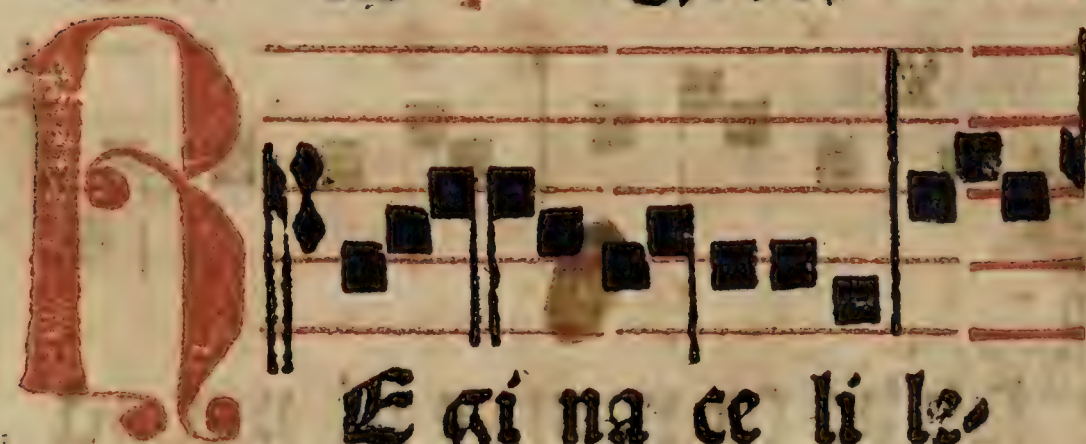 REgina celi le